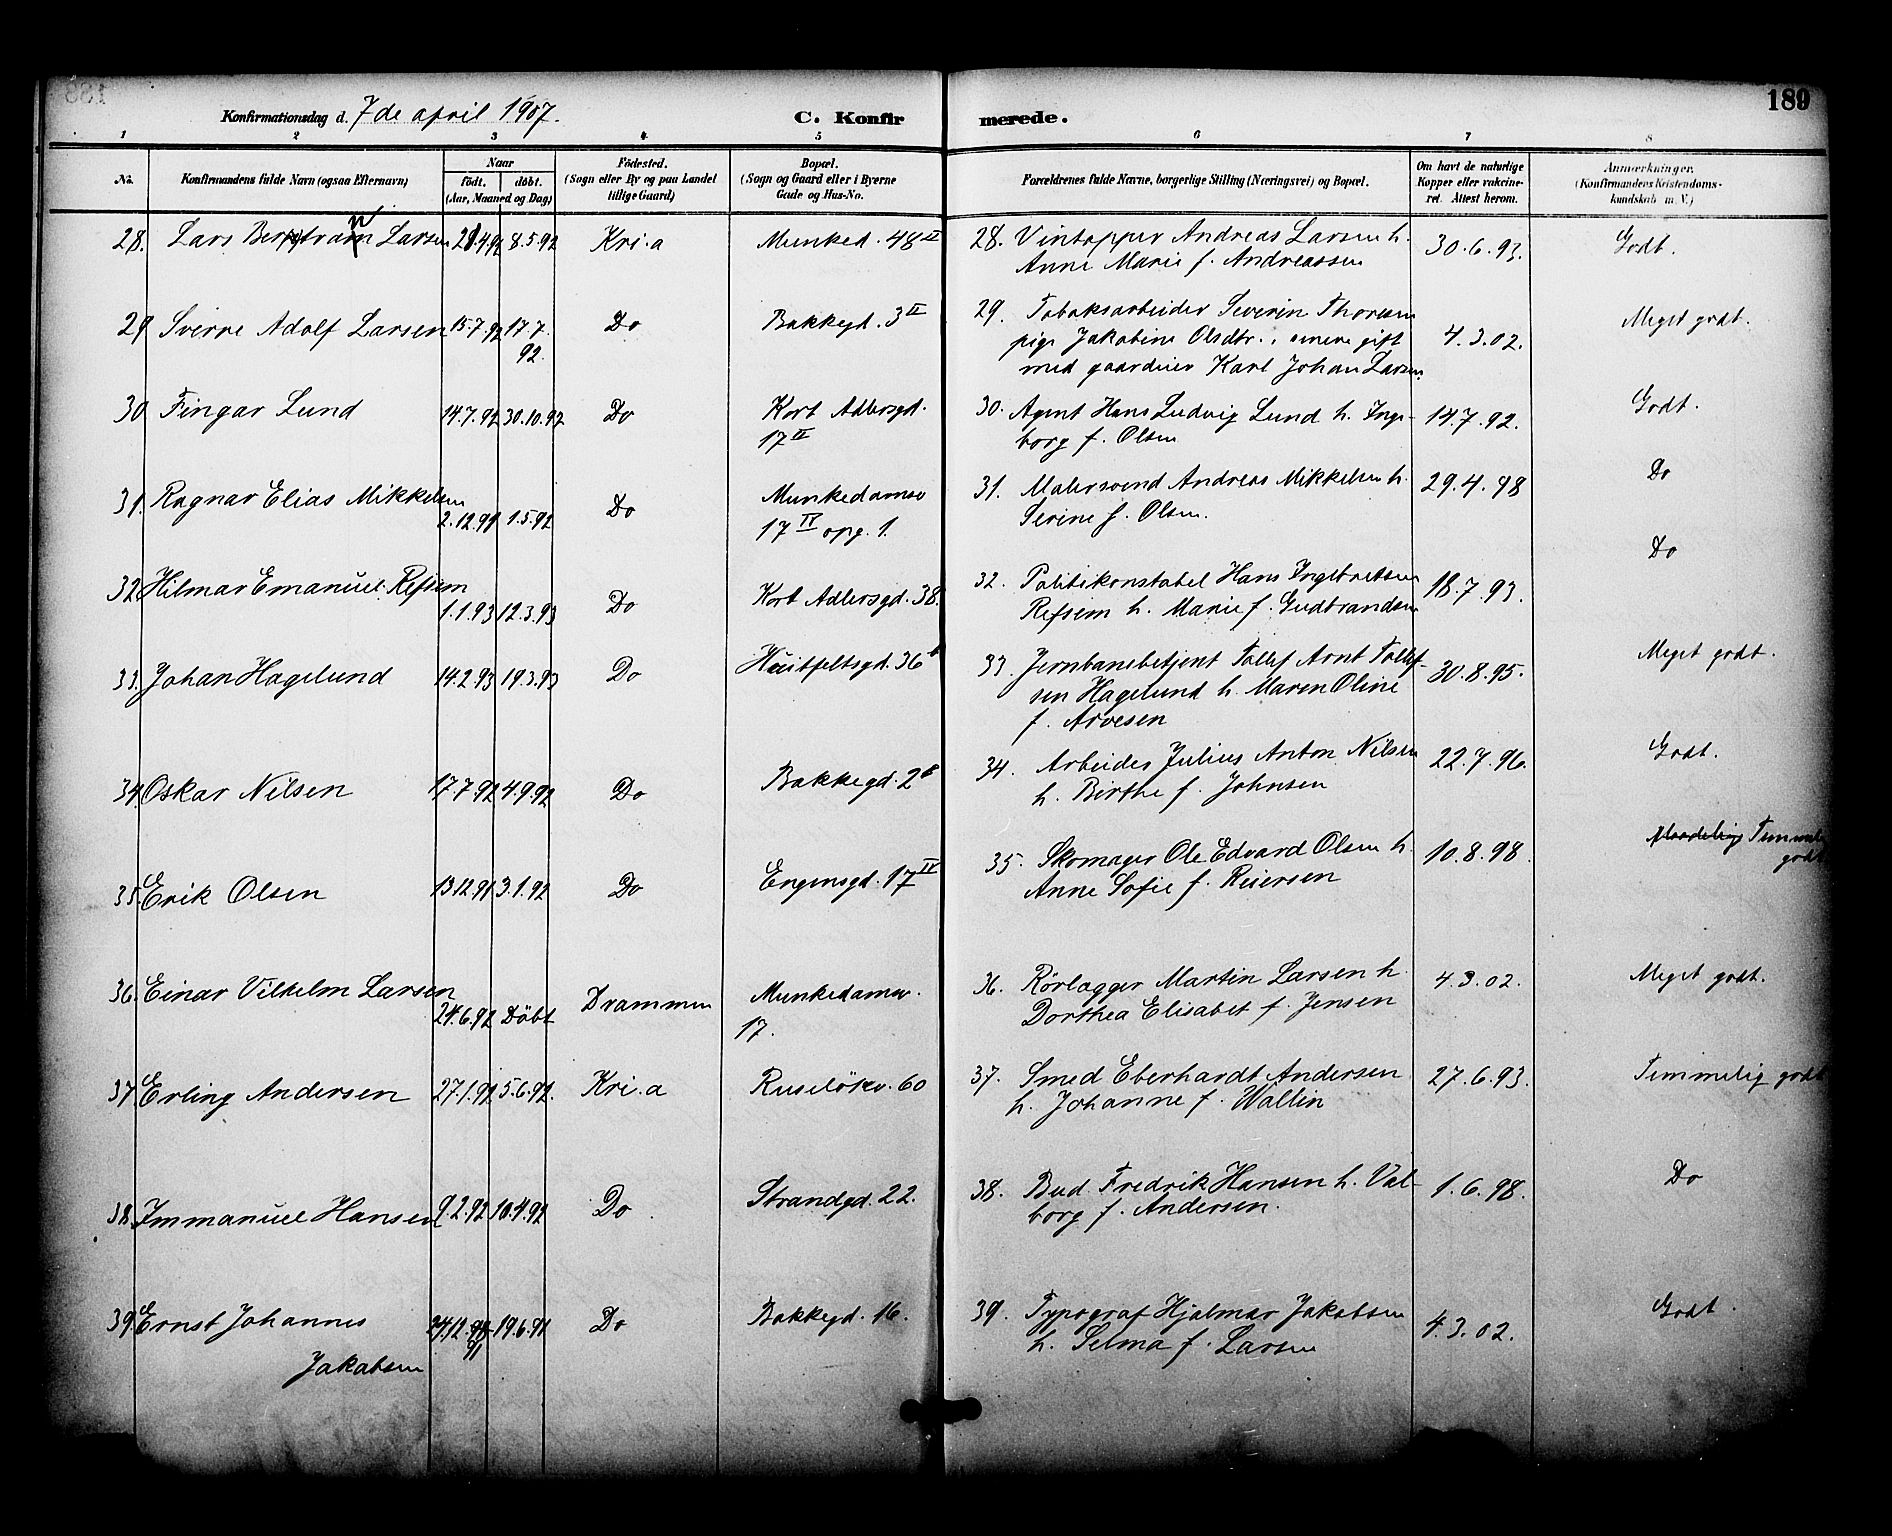 189
Konfirmationsdag d. 7de april 1907.
C. Konfir merede.
1 2 3 4 5 6 7 8
No.
Konfirmandens fulde Navn (ogsaa Efternavn)
Naar
födt. döbt.
(Aar, Maaned og Dag)
Födested.
(Sogn eller By og paa Landet
tillige Gaard)
Bopæl.
(Sogn og Gaard eller i Byerne
Gade og Hus-No.
Forældrenes fulde Navne, borgerlige Stilling (Næringsvei) og Bopæl.
Om havt de naturlige
Kopper eller vakcine-
ret. Attest herom.
Anmærkninger.
(Konfirmandens Kristendoms-
kundskab m. V.)
28. Lars Larsen 8.5.92 Kri.a Munked. 48 II
28. Vintapper Andreas Larsen h. 30.6.93. Godt.
Anne Marie f. Andreassen
29 Sverre Adolf Larsen 15.7.92 17.7. Do Bakkegd. 3 II
92.
29. Tobaksarbeider Severin Thoresen 4.3.02. Meget godt.
pige Jakobine Olsdtr., senere gift
med gaardeier Karl Johan Larsen
30. Fingar Lund 14.7.92 30.10.92 Do Kort Adlersgd.
17 II
30. Agent Hans Ludvig Lund h. Inge- 14.7.92. Godt.
borg f. Olsen
31. Ragnar Elias Mikkelsen Munkedamsv
2.12.91 1.5.92 Do 17 IV opg. 1.
31. Malersvend Andreas Mikkelsen h. 29.4.98 Do
Serine f. Olsen.
32. Hilmar Emanuel Refsem
1.1.93 12.3.93 Do Kort Adlersgd. 38.
32. Politikonstabel Hans Ingebretsen 18.7.93. Do
Refsem h. Marie f. Gudbrandsen
33. Johan Hagelund 14.2.93 19.3.93 Do Huitfeltsgd. 36 b
33. Jernbanebetjent Tollef Arnt Tollef- 30.8.95. Meget godt.
sen Hagelund h. Maren Oline
f. Arvesen
34 Oskar Nilsen 17.7.92 4.9.92 Do Bakkegd. 2
34. Arbeider Julius Anton Nilsen 22.7.96. Godt.
h. Birthe f. Johnsen
35. Erik Olsen 13.12.91 3.1.92 Do Engensgd. 17 IV
35. Skomager Ole Edvard Olsen h. 10.8.98. Maadelig Temmelig
godt
Anne Sofie f. Reiersen
36. Einar Vilhelm Larsen Munkedamsv.
24.6.92 Döbt Drammen 17.
36. Rörlægger Martin Larsen h. 4.3.02. Meget godt.
Dorthea Elisabet f. Jensen
37. Erling Andersen 27.1.92 5.6.92. Kri.a Ruselökv. 60
37. Smed Eberhardt Andersen 27.6.93. Temmelig godt
h. Johanne f. Wallin
38. Immanuel Hansen 9.2.92 10.4.92 Do Strandgd. 22.
38. Bud Fredrik Hansen h. Val- 1.6.98. Do
borg f. Andersen.
39. Ernst Johannes 19.6.91 Do Bakkegd. 16.
91
Jakobsen
39. Typograf Hjalmar Jakobsen 4.3.02. Godt.
h. Selma f. Larsen